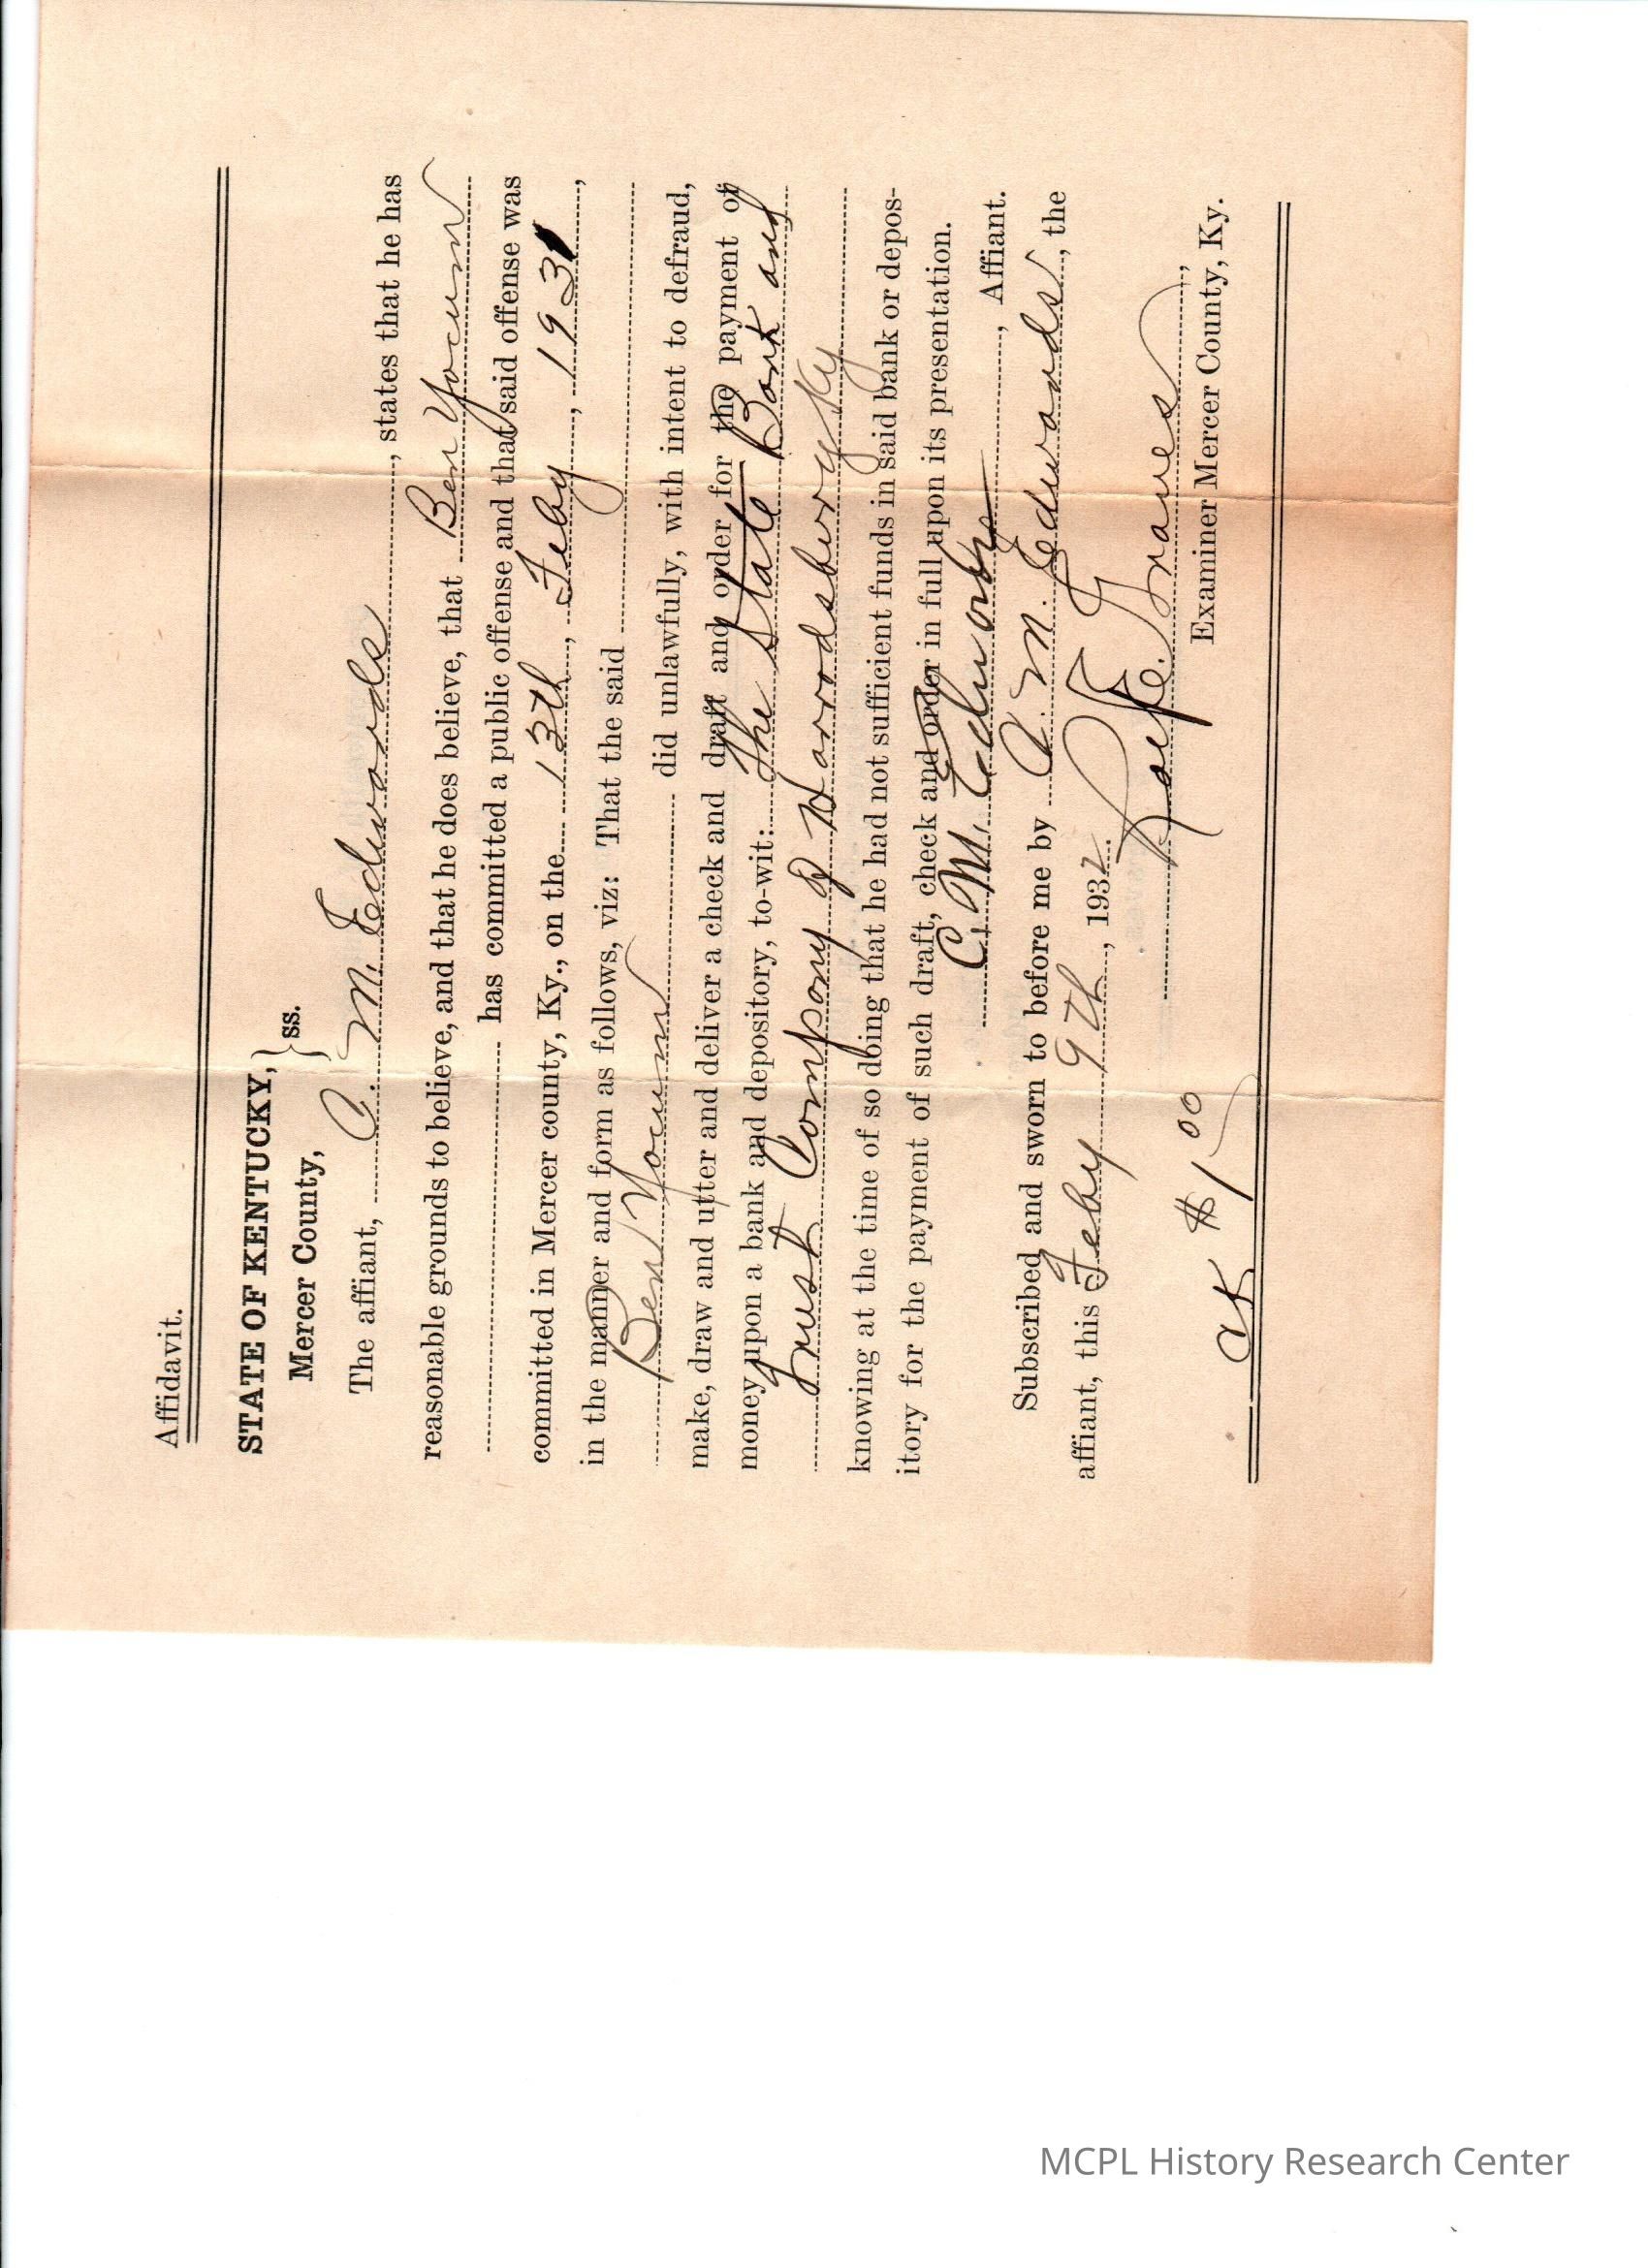 Affidavit.
STATE OF KENTUCKY,
Mercer County, } ss.
The affiant, C. M. Edwards, states that he has
reasonable grounds to believe, and that he does believe, that Ben Yocum
has committed a public offense and that said offense was
committed in Mercer county, Ky., on the 13th, Feby, 1931,
in the manner and form as follows, viz: That the said
Ben Yocum did unlawfully, with intent to defraud,
make, draw and utter and deliver a check and draft and order for the payment of
money upon a bank and depository, to-wit: The State Bank and
Trust Company of Harrodsburg Ky
knowing at the time of so doing that he had not sufficient funds in said bank or depos-
itory for the payment of such draft, check and order in full upon its presentation.
C. M. Edwards, Affiant.
Subscribed and sworn to before me by C. M. Edwards, the
affiant, this Feby 9th, 1932.
E. Graves,
Examiner Mercer County, Ky.
$1.00
MCPL History Research Center